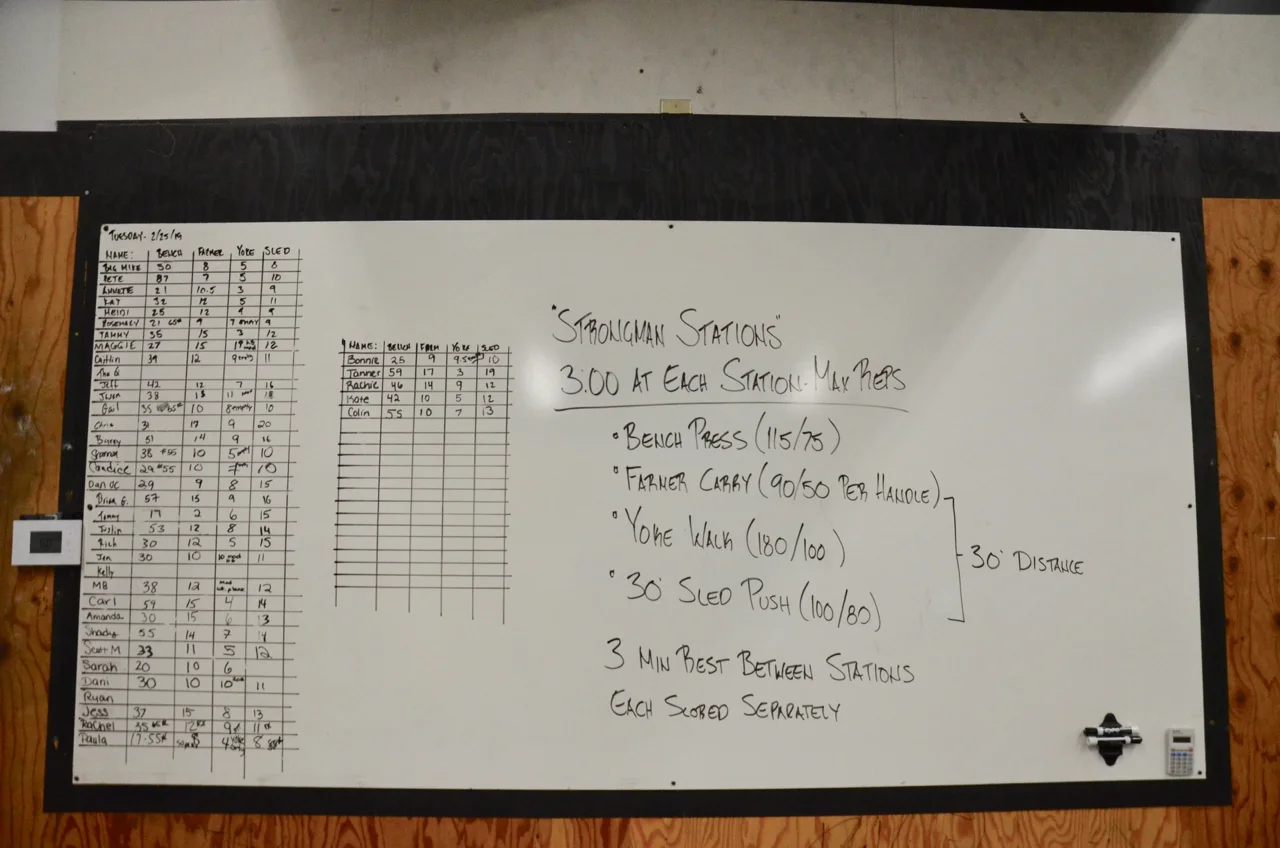 TUESDAY - 2/25/19
NAME: BENCH FARMER YOKE SLED
BIG MIKE 50 8 5 8
PETE 87 7 5 10
ANNETTE 21 10.5 3 9
KAT 32 12 5 11
HEIDI 25 12
ROSEMARY 21 65# 9 7 EMPTY 9
TAMMY 35 15 3 12
MAGGIE 27 15 12
Caitlin 39 12 9 11
Jeff 42 12 7 16
38 11
Gail 35 10 8 empty 10
Chris 31 17 9 20
51 14 9 16
38 #55 10 5 10
Candice 29 #55 10 7 10
Dan OC 29 9 8 15
Brian G. 57 15 9 16
Tommy 17 2 6 15
Justin 53 12 8 14
Rich 30 12 5 15
Jen 30 10 10 11
Kelly
MB 38 12 12
Carl 59 15 4 14
Amanda 30 15 6 13
Shady 55 14 7
Scott M 33 11 5 12
Sarah 20 10 6
Dani 30 10 10 11
Ryan
Jess 37 15 8 13
Rachel 35 12 9 11
Paula 17-55# 4 8
NAME: BENCH FARM YOKE SLED
Bonnie 25 9 9.5 10
Tanner 59 17 3 19
Rachie 46 14 9 12
Kate 42 10 5 12
Colin 55 10 7 13
"STRONGMAN STATIONS"
3:00 AT EACH STATION - MAX REPS
• BENCH PRESS (115/75)
• FARMER CARRY (90/50 PER HANDLE)
• YOKE WALK (180/100)
• 30' SLED PUSH (100/80)
30' DISTANCE
3 MIN REST BETWEEN STATIONS
EACH SCORED SEPARATELY